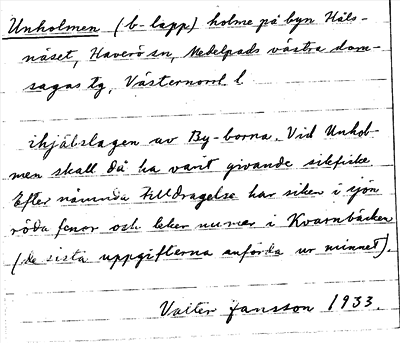 Unholmen (b-lapp) holme på byn Häls-
näset, Haverö sn, Medelpads västra dom-
sagas tg, Västernorrl. l.
ihjälslagen av By-borna. Vid Unhol-
men skall då ha varit givande sikfiske
Efter nämnda tilldragelse har siken i sjön
röda fenor och leker numer i Kvarnbäcken
(de sista uppgifterna anförda ur minnet).
Valter Jansson 1933.